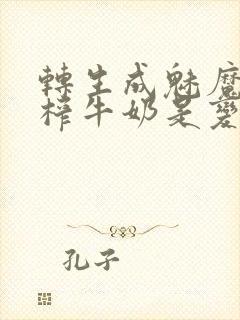 轉生成魅魔
榨牛奶是愛
孔子